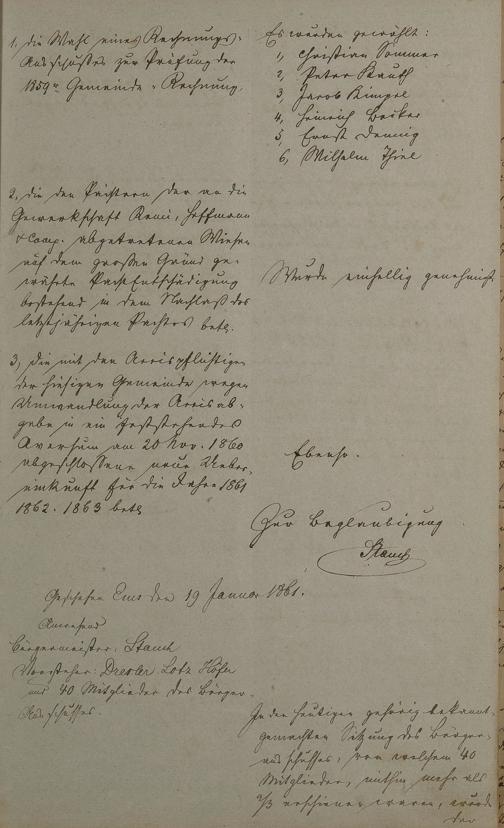 1, die Wahl eines Rechnungs-
Ausschußes zur Prüfung der
1859er Gemeinde-Rechnung.
Es wurden gewählt:
1, Christian Sommer
2, Peter Knuth
3, Jacob Kimpel
4, Heinrich Becker
5, Ernst Dennig
6, Wilhelm Thiel
2, die den Pächtern der an die
Gewerkschaft Remi, Hoffmann
& Comp. abgetretenen Wiesen
auf dem großen Gründ ge-
währte PachtEntschädigung
bestehend in dem Nachlaß des
letztjährigen Pachtes betr.
Wurde einhellig genehmigt.
3, die mit den Accispflichtigen
der hiesigen Gemeinde wegen
Umwandlung der Accisab-
gabe in ein feststehendes
Aversum am 20 Nov. 1860
abgeschlossene neue Ueber-
einkunft für die Jahre 1861
1862. 1863 betr.
Ebenso.
Zur Beglaubigung
Stamt
Geschehen Ems den 19 Januar 1861.
Anwesend
Bürgermeister: Stamt
Vorsteher: Lotz Höfn
und 40 Mitglieder des Bürger-
Ausschußes.
In der heutigen gehörig bekannt
gemachten Sitzung des Bürger-
ausschußes, von welchem 40
Mitglieder, mithin mehr als
2/3 erschienen waren, wurde
der